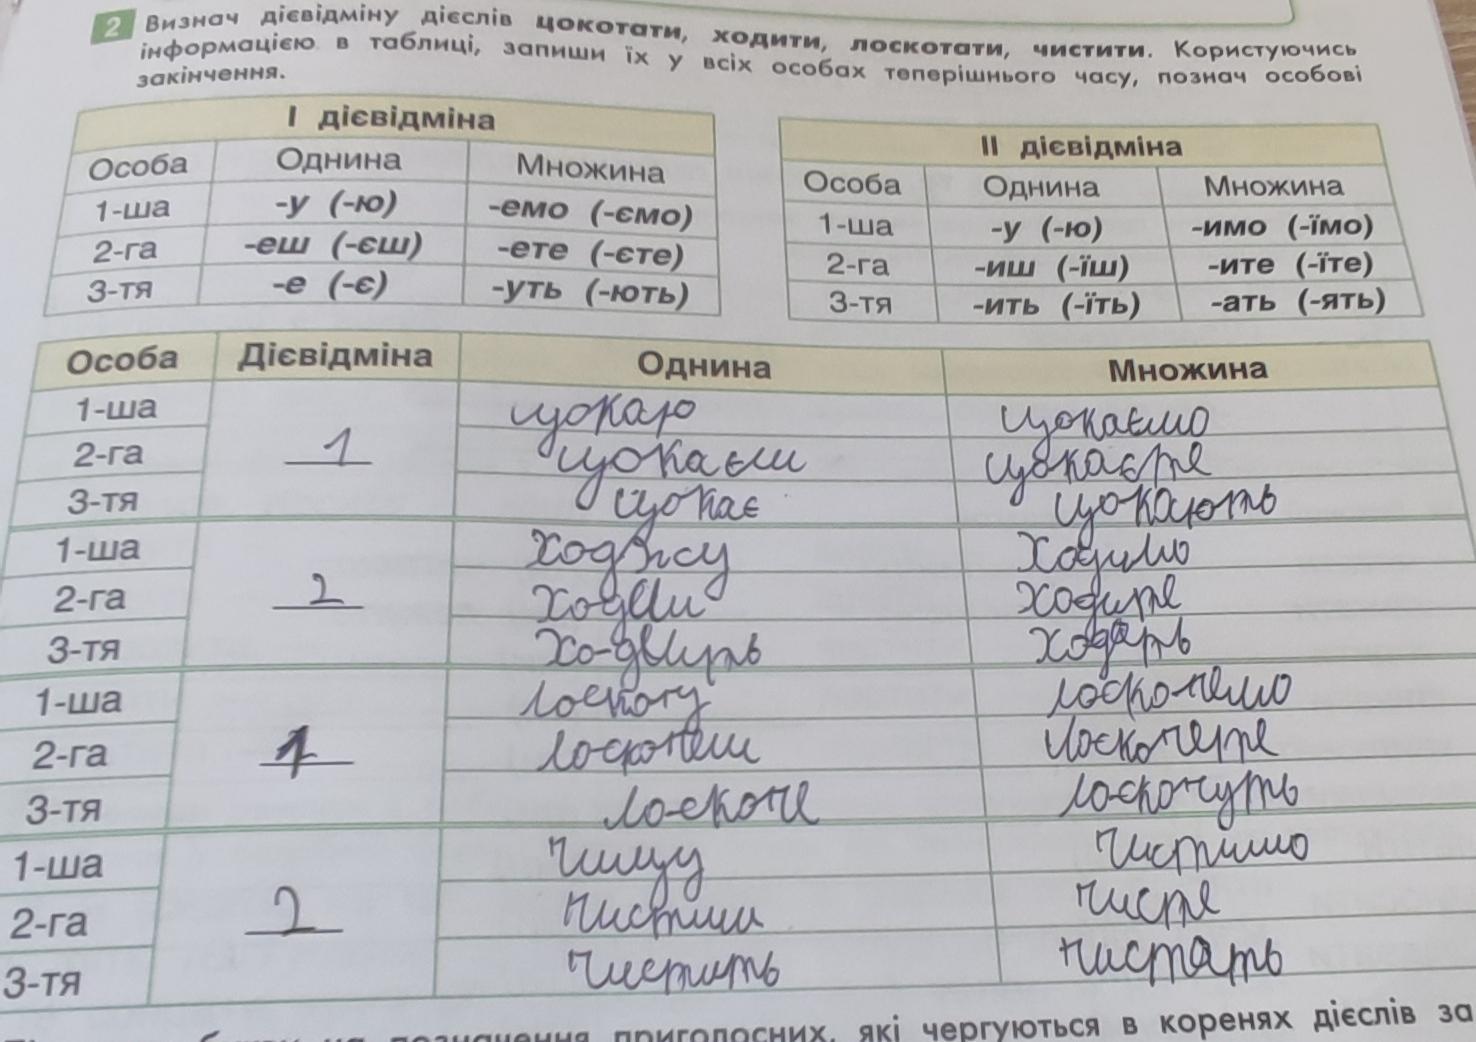 2 Визнач дієвідміну дієслів цокотати, ходити, лоскотати, чистити. Користуючись
інформацією в таблиці, запиши їх у всіх особах теперішнього часу, познач особові
закінчення.
І дієвідміна
Особа Однина Множина
1-ша -у (-ю) -емо (-ємо)
2-га -еш (-єш) -ете (-єте)
3-тя -е (-є) -уть (-ють)
ІІ дієвідміна
Особа Однина Множина
1-ша -у (-ю) -имо (-їмо)
2-га -иш (-їш) -ите (-їте)
3-тя -ить (-їть) -ать (-ять)
Особа Дієвідміна Однина Множина
1-ша цокаю цокаємо
2-га 1 цокаєш цокаєте
3-тя цокає цокають
1-ша ходжу ходимо
2-га 2 ходите
3-тя
1-ша лоскочу лоскочемо
2-га 1 лоскочеш лоскочете
3-тя лоскоче лоскочуть
1-ша чищу чистимо
2-га 2 чистиш чисте
3-тя чистить
позначення приголосних, які чергуються в коренях дієслів за